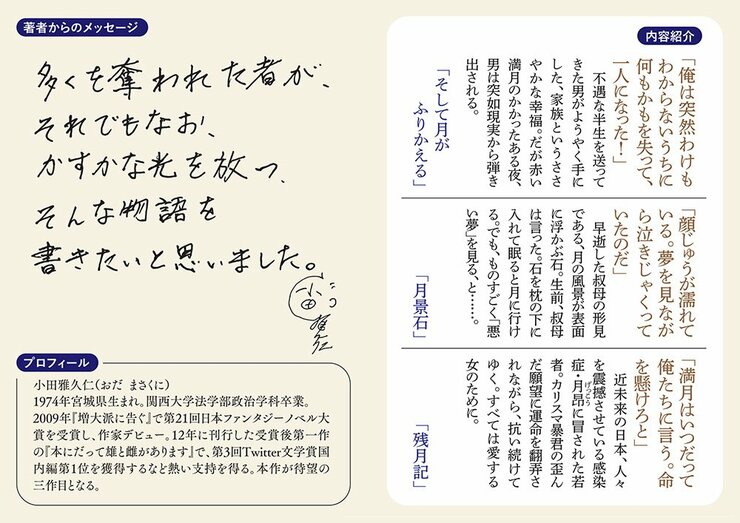 著者からのメッセージ
多くを奪われた者が、
それでもなお、
かすかな光を放つ、
そんな物語を
書きたいと思いました。
小田
雅久仁
プロフィール
小田雅久仁（おだ まさくに）
1974年宮城県生まれ。関西大学法学部政治学科卒業。
2009年『増大派に告ぐ』で第21回日本ファンタジーノベル大
賞を受賞し、作家デビュー。12年に刊行した受賞後第一作
の『本にだって雄と雌があります』で、第3回Twitter文学賞国
内編第1位を獲得するなど熱い支持を得る。本作が待望の
三作目となる。
内容紹介
「俺は突然わけも
わからないうちに
何もかもを失って、
一人になった！」
不遇な半生を送って
きた男がようやく手に
した、家族というささ
やかな幸福。だが赤い
満月のかかったある夜、
男は突如現実から弾き
出される。
「そして月が
ふりかえる」
「顔じゅうが濡れて
いる。夢を見なが
ら泣きじゃくって
いたのだ」
早逝した叔母の形見
である、月の風景が表面
に浮かぶ石。生前、叔母
は言った。石を枕の下に
入れて眠ると月に行け
る。でも、ものすごく「悪
い夢」を見る、と……。
「月景石」
「満月はいつだって
俺たちに言う。命
を懸けろと」
近未来の日本、人々
を震撼させている感染
症・月昂に冒された若
げっこう
者。カリスマ暴君の歪ん
だ願望に運命を翻弄さ
れながら、抗い続けて
ゆく。すべては愛する
女のために。
「残月記」